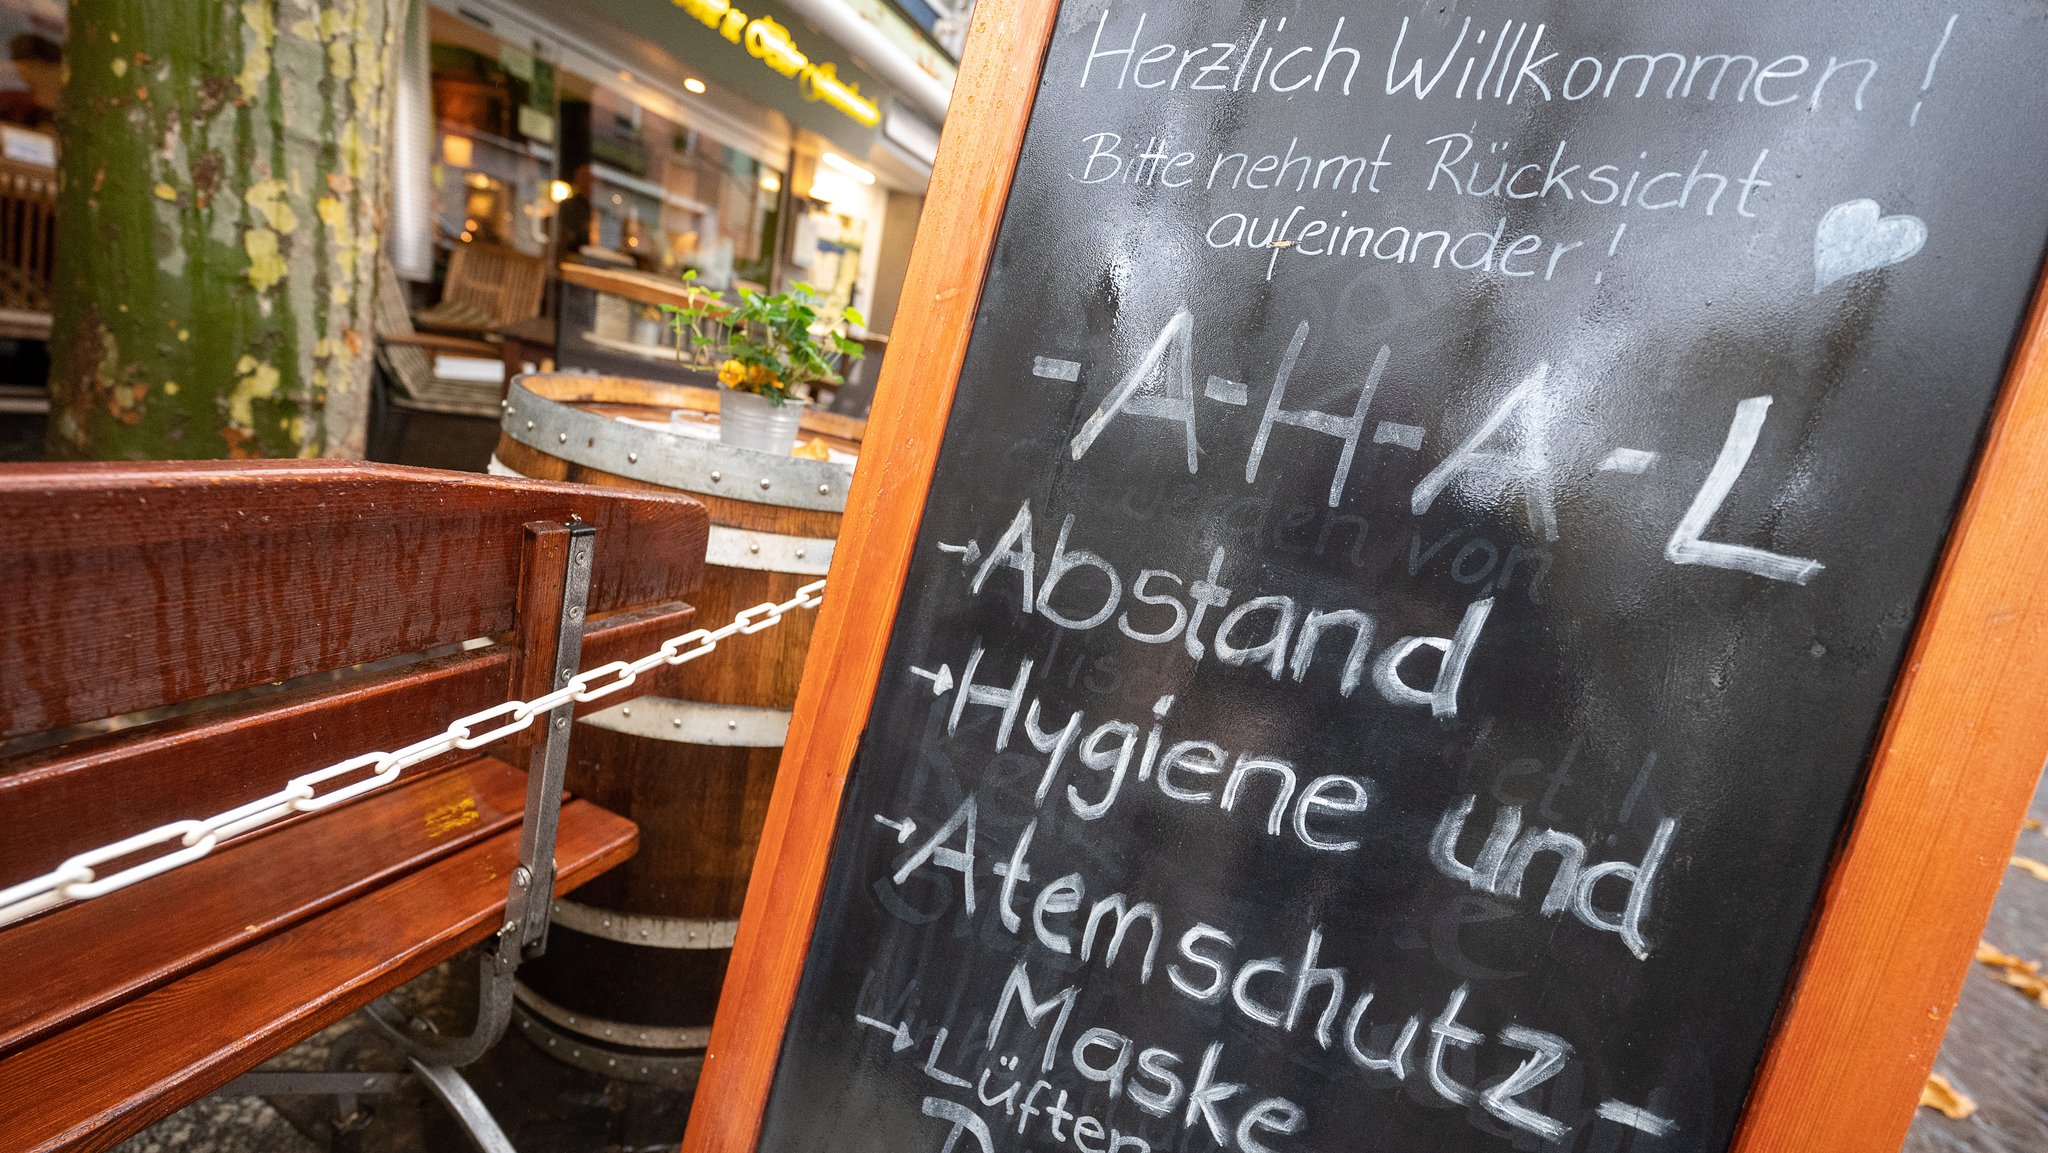 Herzlich Willkommen !
Bitte nehmt Rücksicht
aufeinander !
- A - H - A - L
→ Abstand
→ Hygiene und
→ Atemschutz -
Maske
→ Lüften